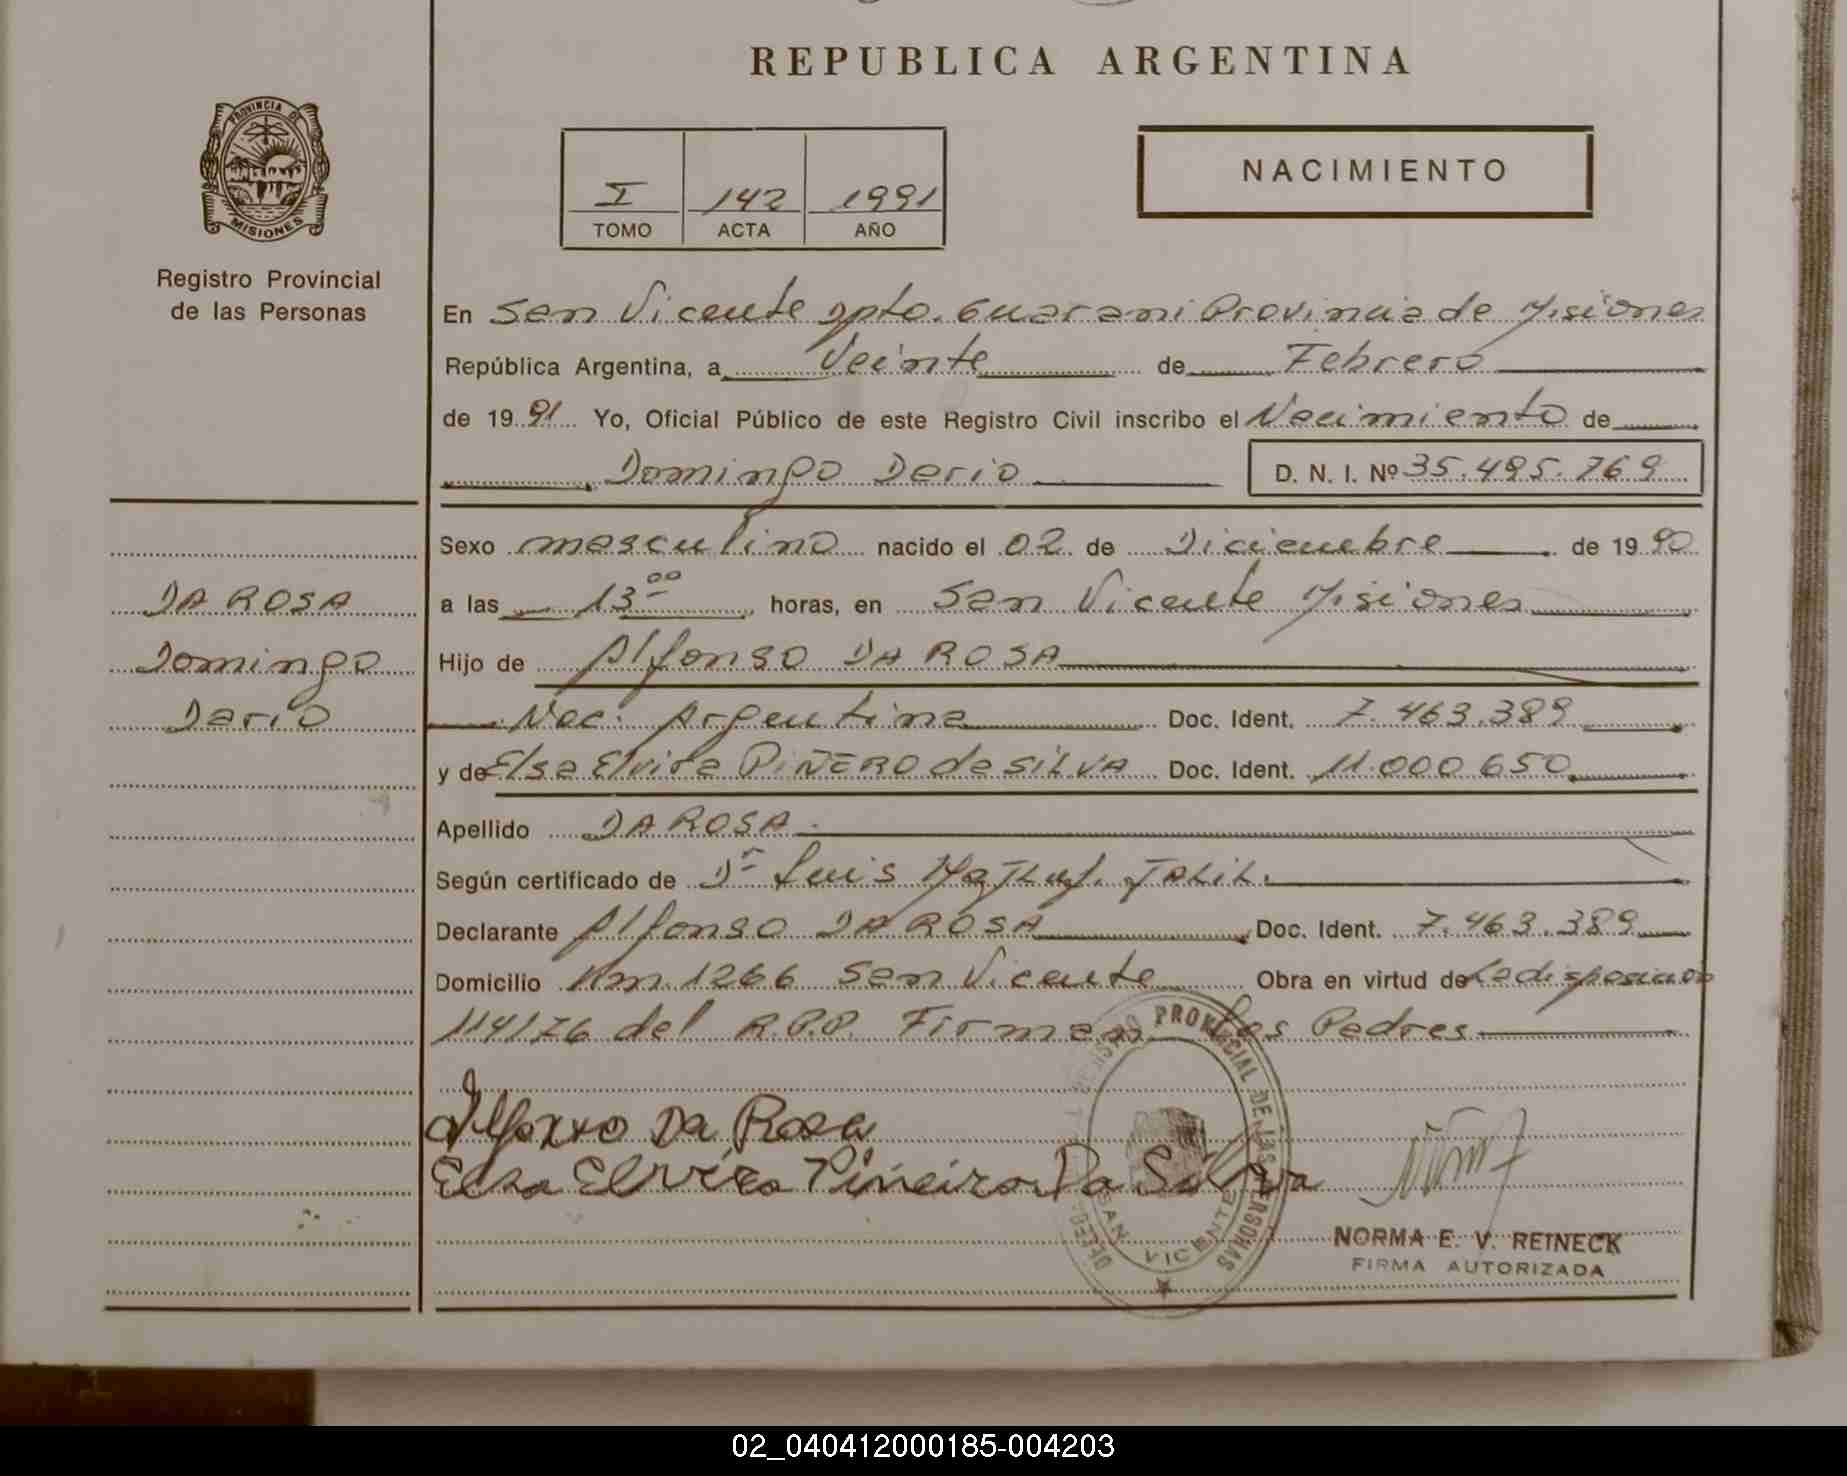 REPUBLICA ARGENTINA
PROVINCIA DE
MISIONES
Registro Provincial
de las Personas
I 142 1991
TOMO ACTA AÑO
NACIMIENTO
En San Vicente Dpto. Guarani Provincia de Misiones
República Argentina, a Veinte de Febrero
de 1991 Yo, Oficial Público de este Registro Civil inscribo el Nacimiento de
Domingo Dario D. N. I. Nº 35.495.769
Sexo masculino nacido el 02 de Diciembre de 1990
a las 13 00 horas, en San Vicente Misiones
Hijo de Alfonso DA ROSA
Nac. Argentina Doc. Ident. 7.463.389
y de Elsa Elvira PIÑERO da SILVA Doc. Ident. 11.000650
Apellido DA ROSA.
Según certificado de Dr Luis JALIL.
Declarante Alfonso DA ROSA Doc. Ident. 7.463.389
Domicilio Km 1266 San Vicente Obra en virtud de La disposicion
114/76 del R.P.P. Firman los Padres
DA ROSA
Domingo
Dario
Alfonso Da Rosa
Elsa Elvira Piñeiro Da Silva
REGISTRO PROVINCIAL DE LAS PERSONAS
SAN VICENTE
NORMA E. V. REINECK
FIRMA AUTORIZADA
02_040412000185-004203